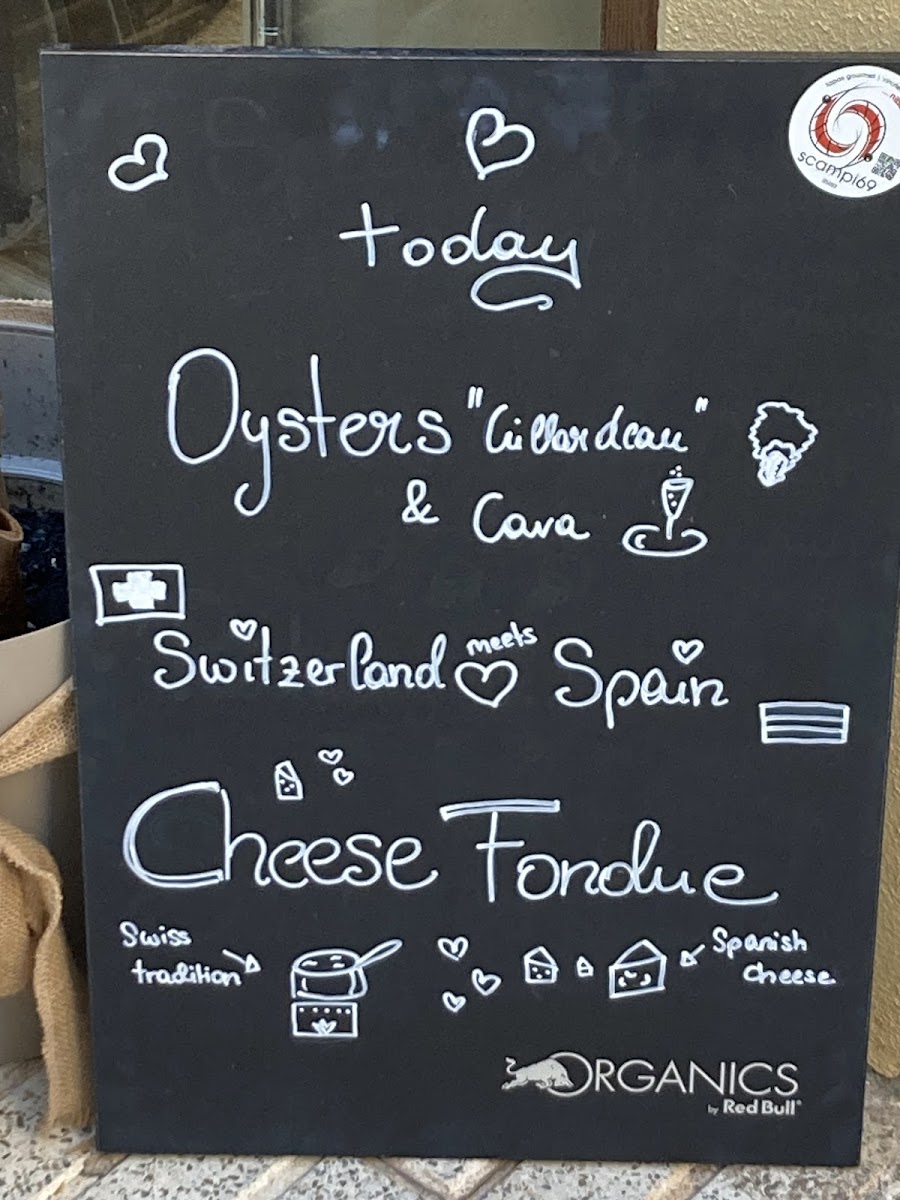 tapas gourmet
scampi69
today
Oysters "Gillardeau"
& Cava
Switzerland meets Spain
Cheese Fondue
Swiss
tradition
Spanish
cheese
ORGANICS
by Red Bull®